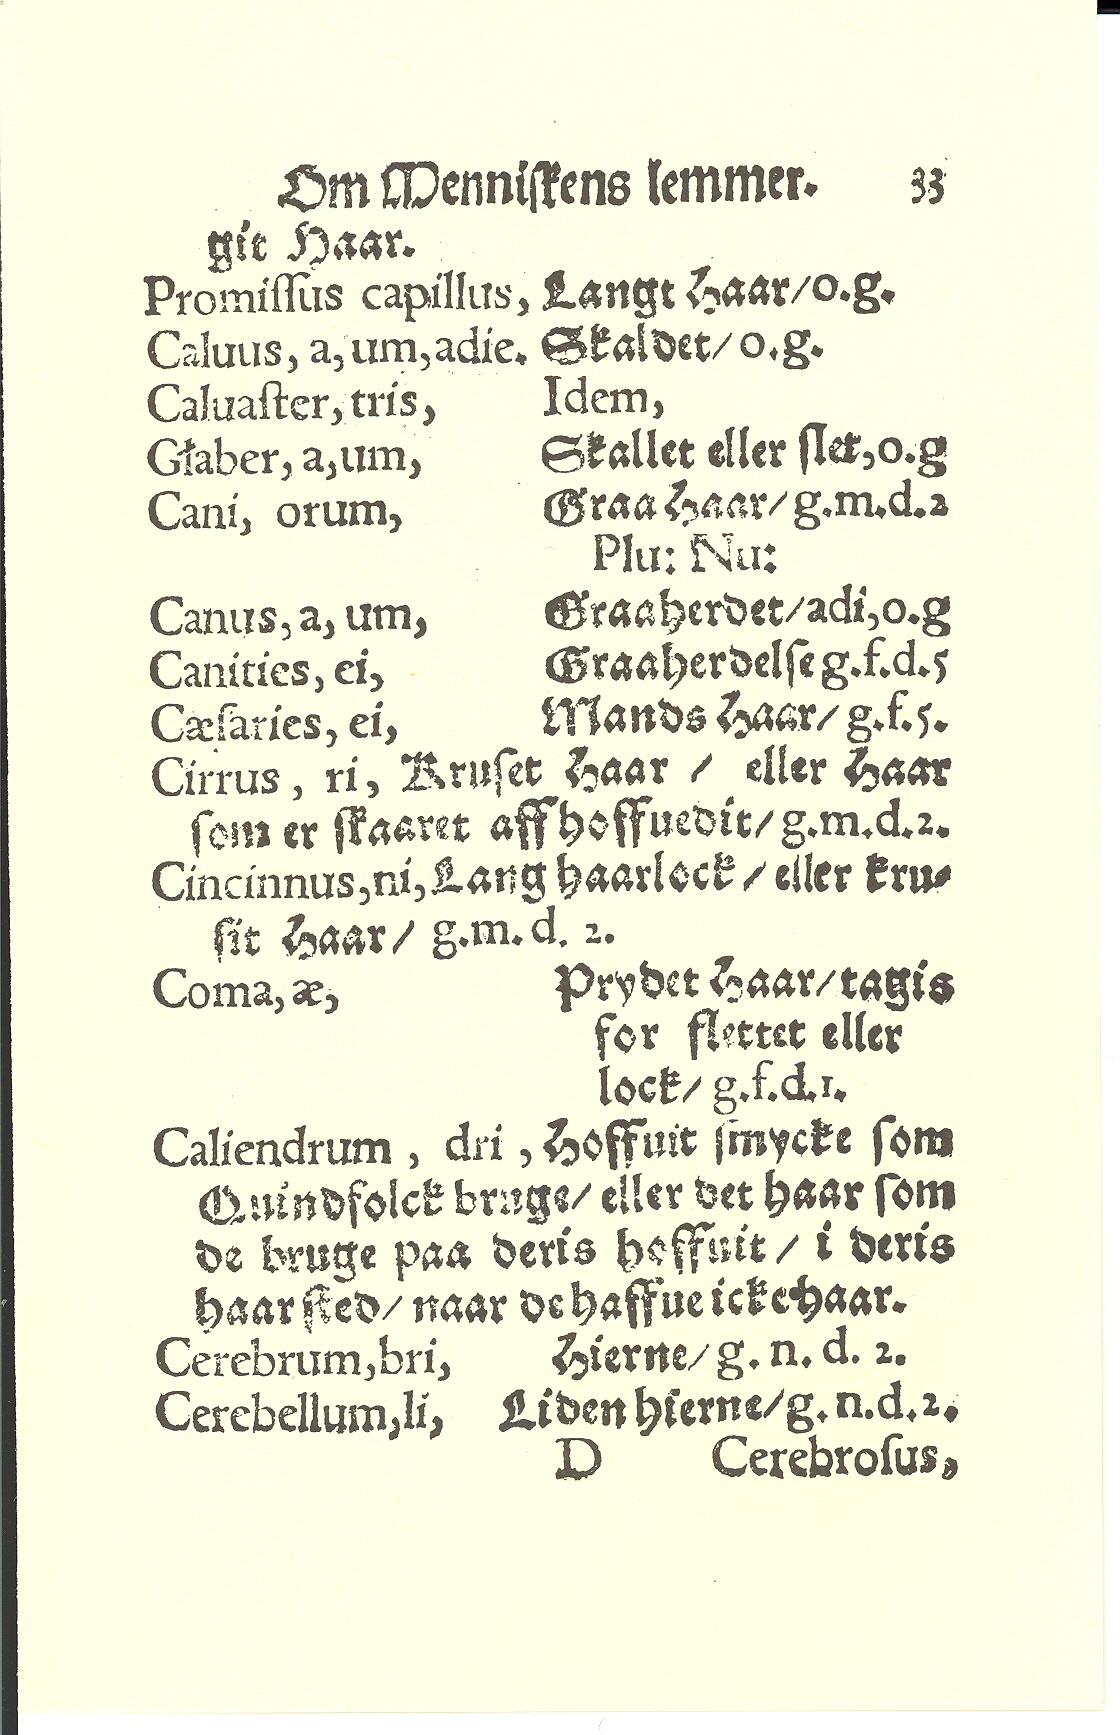 Om Menniſkens lemmer. 33
git Haar.
Promiſſus capillus, Langt Haar/o.g.
Caluus, a, um, adie. Skaldet/ o.g.
Caluaſter, tris, Idem,
Glaber, a, um, Skallet eller ſlet, o.g
Cani, orum, Graa Haar/ g.m.d.2
Plu: Nu:
Canus, a, um, Graaherdet/adi, o.g
Canities, ei, Graaherdelſe g.f.d.5
Cæſaries, ei, Mands Haar/ g.f.5.
Cirrus, ri, Kruſet Haar / eller Haar
ſom er ſkaaret aff hoffuedit/ g.m.d.2.
Cincinnus, ni, Lang haarlock / eller kru⸗
ſit Haar/ g.m.d. 2.
Coma, æ, Prydet Haar/tagis
for flettet eller
lock/ g.f.d.1.
Caliendrum, dri, Hoffuit ſmycke ſom
Quindfolck bruge/ eller det haar ſom
de bruge paa deris hoffuit / i deris
haar ſted/ naar de haffue icke haar.
Cerebrum, bri, Hierne/ g. n. d. 2.
Cerebellum, li, Liden hierne/g. n.d.2.
D Cerebroſus,